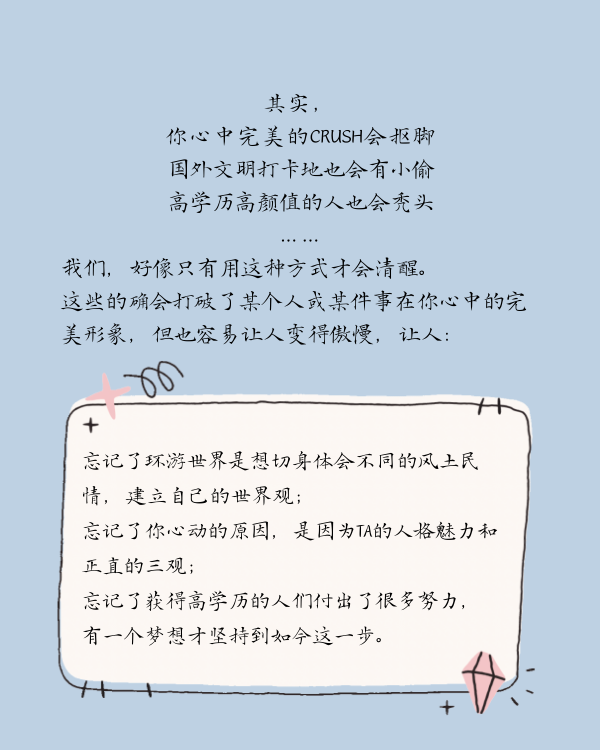 其实，
你心中完美的CRUSH会抠脚
国外文明打卡地也会有小偷
高学历高颜值的人也会秃头
... ...
我们，好像只有用这种方式才会清醒。
这些的确会打破了某个人或某件事在你心中的完
美形象，但也容易让人变得傲慢，让人：
忘记了环游世界是想切身体会不同的风土民
情，建立自己的世界观；
忘记了你心动的原因，是因为TA的人格魅力和
正直的三观；
忘记了获得高学历的人们付出了很多努力，
有一个梦想才坚持到如今这一步。